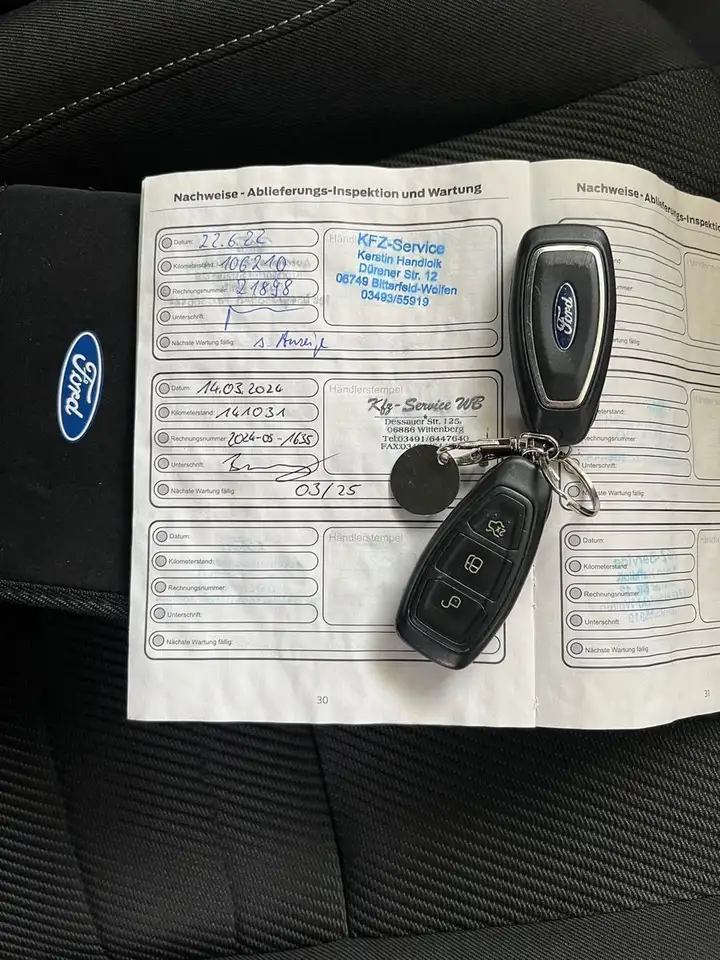 Nachweise - Ablieferungs-Inspektion und Wartung
Datum: 22.6.22
Kilometerstand: 106210
Rechnungsnummer: 21898
Unterschrift:
Nächste Wartung fällig: s. Anzeige
KFZ-Service
Kerstin Handloik
Dürener Str. 12
06749 Bitterfeld-Wolfen
03493/55919
Datum: 14.03.2024
Kilometerstand: 141031
Rechnungsnummer: 2024-05-1635
Unterschrift:
Nächste Wartung fällig: 03/25
Händlerstempel
Kfz-Service WB
Dessauer Str. 125
06886 Wittenberg
Tel:03491/6447640
Datum:
Kilometerstand:
Rechnungsnummer:
Unterschrift:
Nächste Wartung fällig:
Händlerstempel
30
Nachweise - Ablieferungs-Inspektio
Datum:
Kilometerstand:
Rechnungsnummer:
Unterschrift:
Nächste Wartung fällig:
31
Ford
Ford